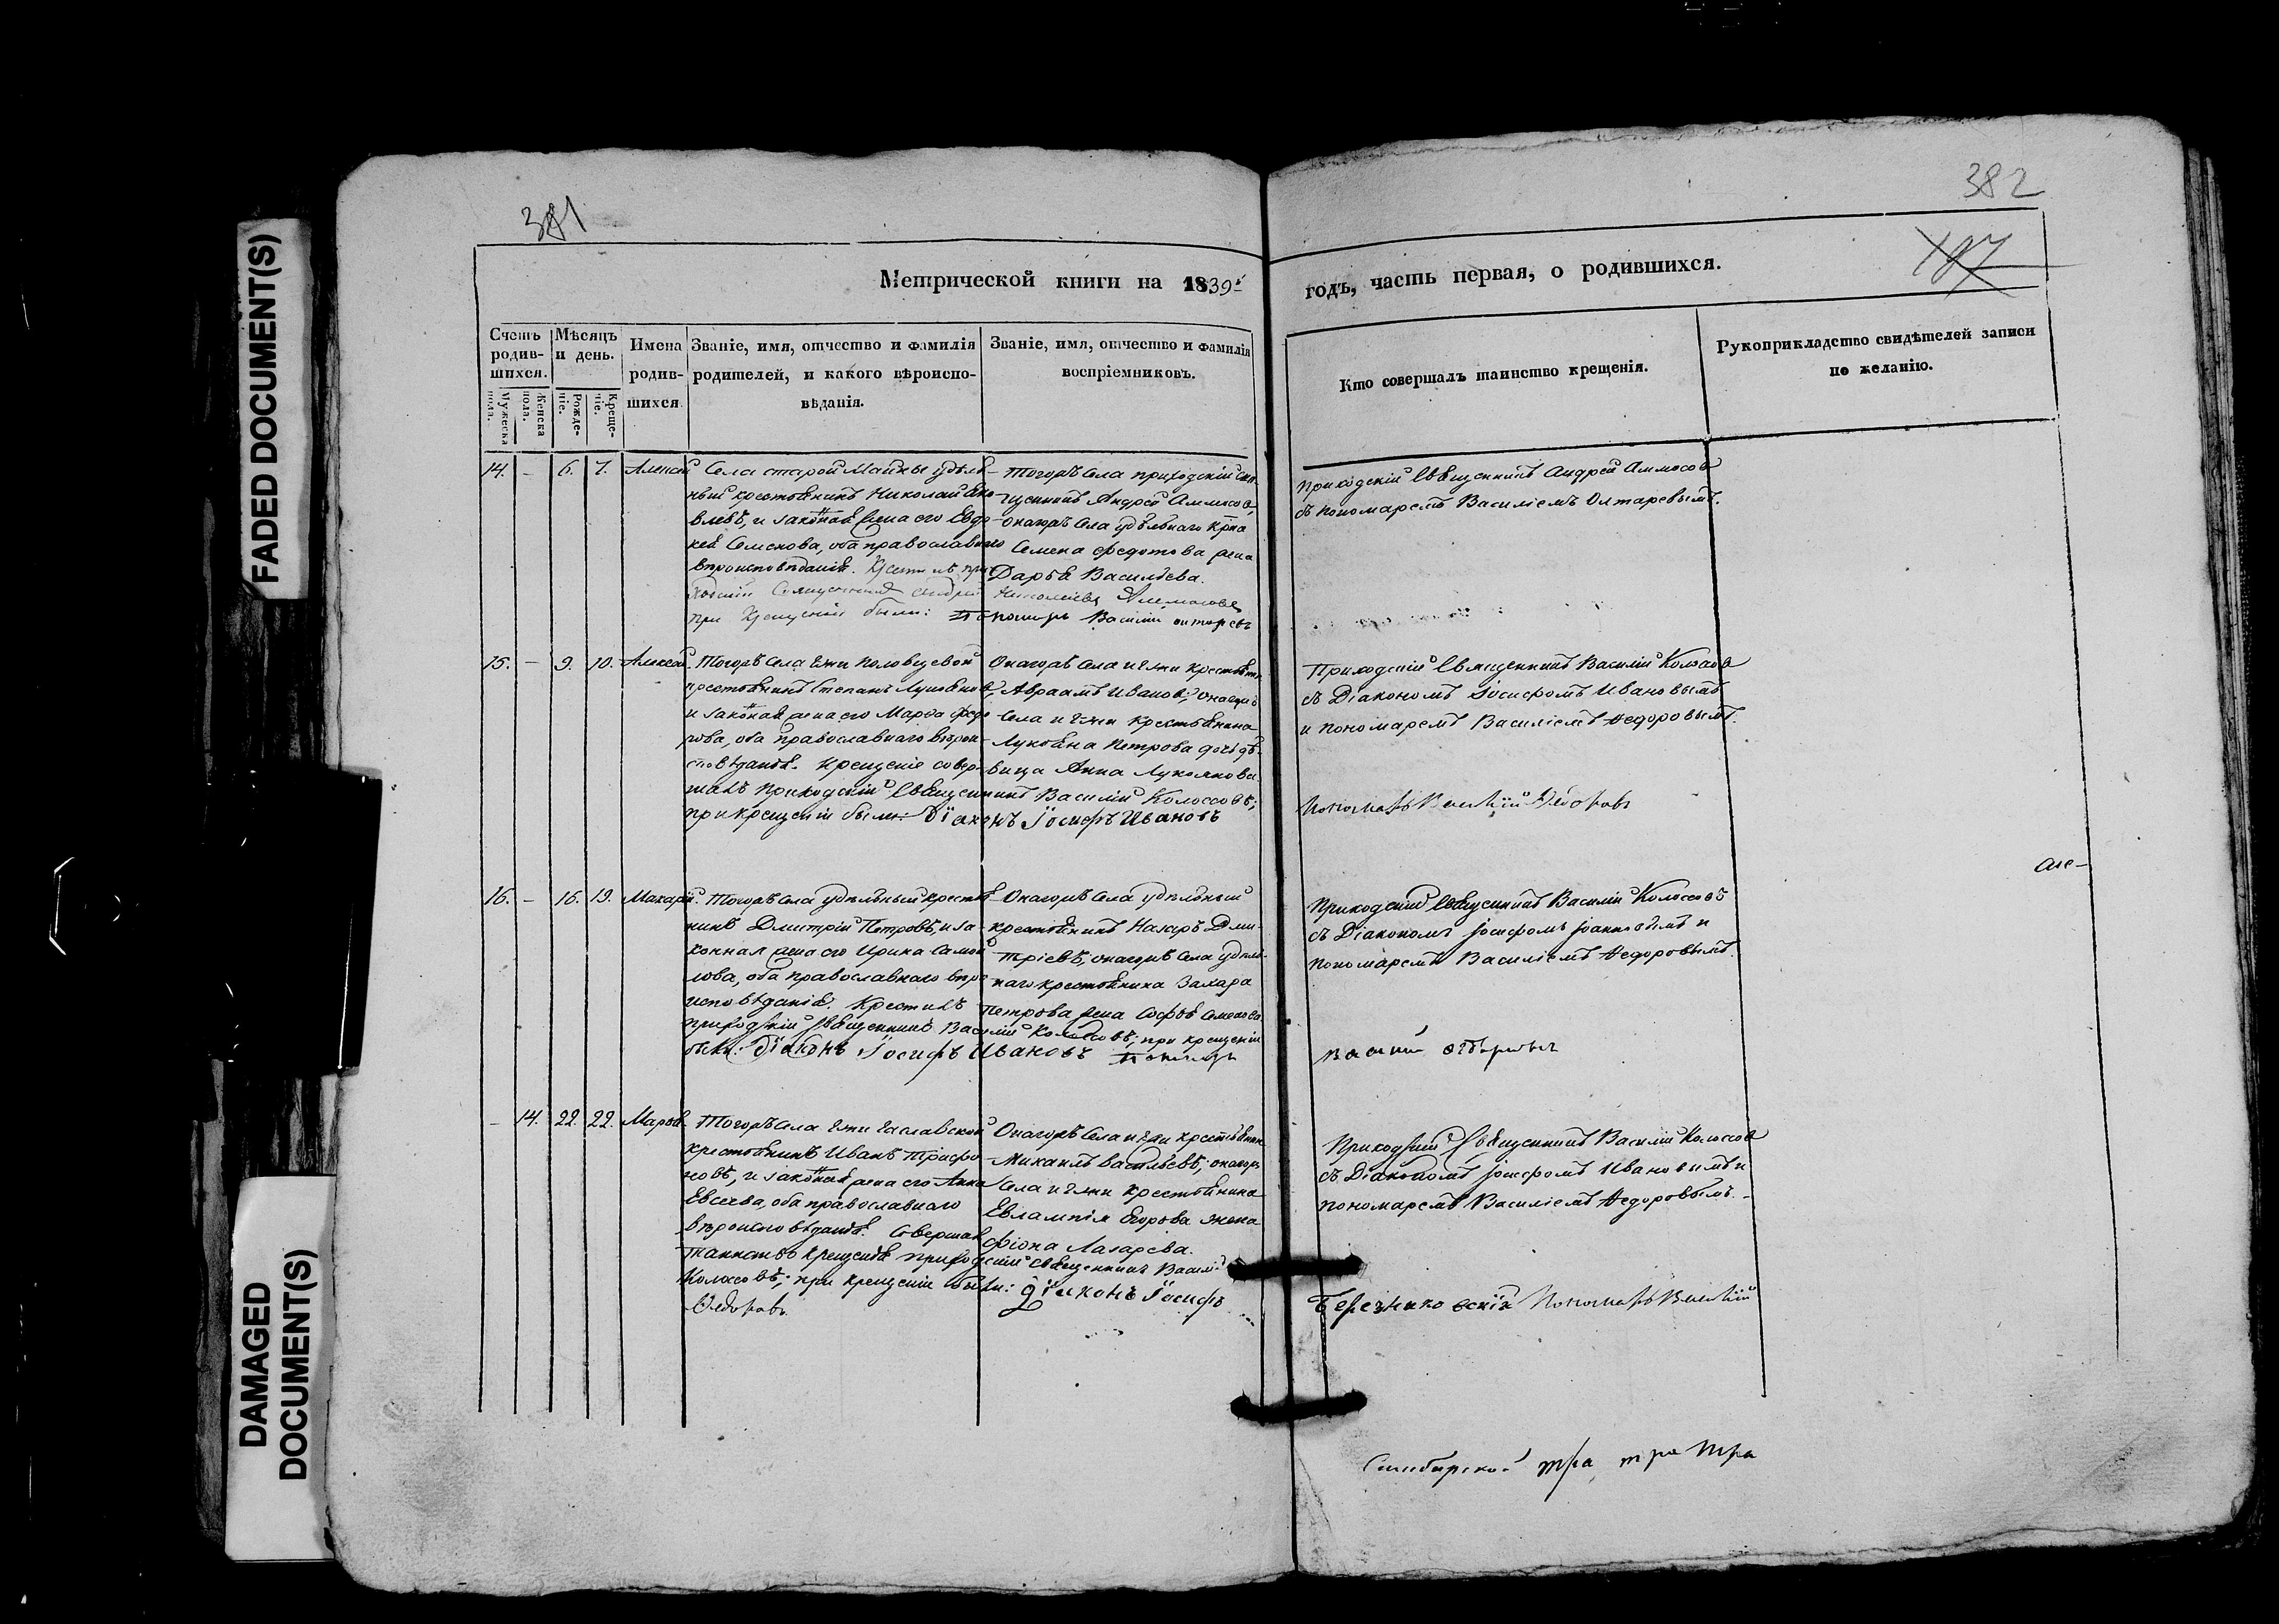 FADED DOCUMENT(S)
DAMAGED
DOCUMENT(S)
381
382
187
Метрической книги на 1839й
годъ, часть первая, о родившихся.
Счетъ
родив-
шихся.
Мужеска
пола.
Женска
пола.
Мѣсяцъ
и день.
Рожде-
ніе.
Креще-
ніе.
Имена
родив-
шихся
Званіе, имя, отчество и фамилія
родителей, и какого вѣроиспо-
вѣданія.
Званіе, имя, отчество и фамилія
воспріемниковъ.
Кто совершалъ таинство крещенія.
Рукоприкладство свидѣтелей записи
по желанію.
14. – 6. 7. Алексей
Села старой Майны удѣль-
ный крестьянинъ Николай Яко-
влевъ, и законная жена его Евдо-
кея Семенова, оба православнаго
вѣроисповѣданія. Крестилъ при-
ходскій Священникъ Андрей Николаевъ Аммосовъ
при Крещеніи были: Пономарь Василій Олтаревъ
Тогожъ Села приходскій свя-
щенникъ Андрей Аммосов,
онагожъ Села удѣльнаго Крна
Семена Федотова жена
Дарья Васильева.
приходскій Священникъ Андрей Аммосов
съ пономаремъ Василіемъ Олтаревымъ.
15. – 9. 10. Алексей.
Тогожъ Села Гжи Половцевой
крестьянинъ Степанъ Лукьянов,
и законная жена его Марфа Федо-
рова, оба православнаго вѣрои-
сповѣданія. Крещеніе совер-
шалъ Приходскій Священникъ Василій Колоссовъ;
при крещеніи были: Діаконъ Іосифъ Ивановъ
Онагожъ Села и Гжи крестьяни
Авраамъ Иванов,
Села и Гжи Крестьянина
Лукьяна Петрова дочь дѣ-
вица Анна Лукоянова.
Приходскій Священникъ Василій Колосов
съ Діакономъ Іосифомъ Ивановымъ
и пономаремъ Василіемъ Федоровымъ.
Пономарь Василій Федоровъ
16. – 16. 19. Макарій.
Тогожъ Села удѣльный крестья-
нинъ Дмитрій Петровъ, и за-
конная жена его Ирина Самой
лова, оба православнаго вѣро-
исповѣданія. Крестилъ
приходскій Священникъ Василій Колоссовъ; при крещеніи
были: Діаконъ Іосифъ Ивановъ Пономарь
Онагожъ Села удѣльный
крестьянинъ Назаръ Дми-
тріевъ; онагожъ Села удѣль-
наго крестьянина Захара
Петрова жена Софья Семенова
Приходскій Священникъ Василій Колоссовъ
съ Діакономъ Іосифомъ Іоанновымъ и
пономаремъ Василіемъ Федоровымъ.
Василій
– 14. 22. 22. Марья.
Тогожъ Села Гжи Чаславской
крестьянинъ Иванъ Трифо
новъ, и законная жена его Анна
Евсеева, оба православнаго
вѣроисповѣданія. Совершалъ
таинство крещенія приходскій священникъ Василій
Колоссовъ; при крещеніи были: Діаконъ Іосифъ
Федоровъ.
Онагожъ Села и Гжи крестьянин
Михаилъ Васильевъ; онагожъ
Села и Гжи крестьянина
Евлампія Егорова жена
Фіона Лазарева.
Приходскій Священникъ Василій Колоссов
съ Діакономъ Іосифомъ Ивановымъ и
пономаремъ Василіемъ Федоровымъ.
Березниковскій Пономарь Василій
Симбирской